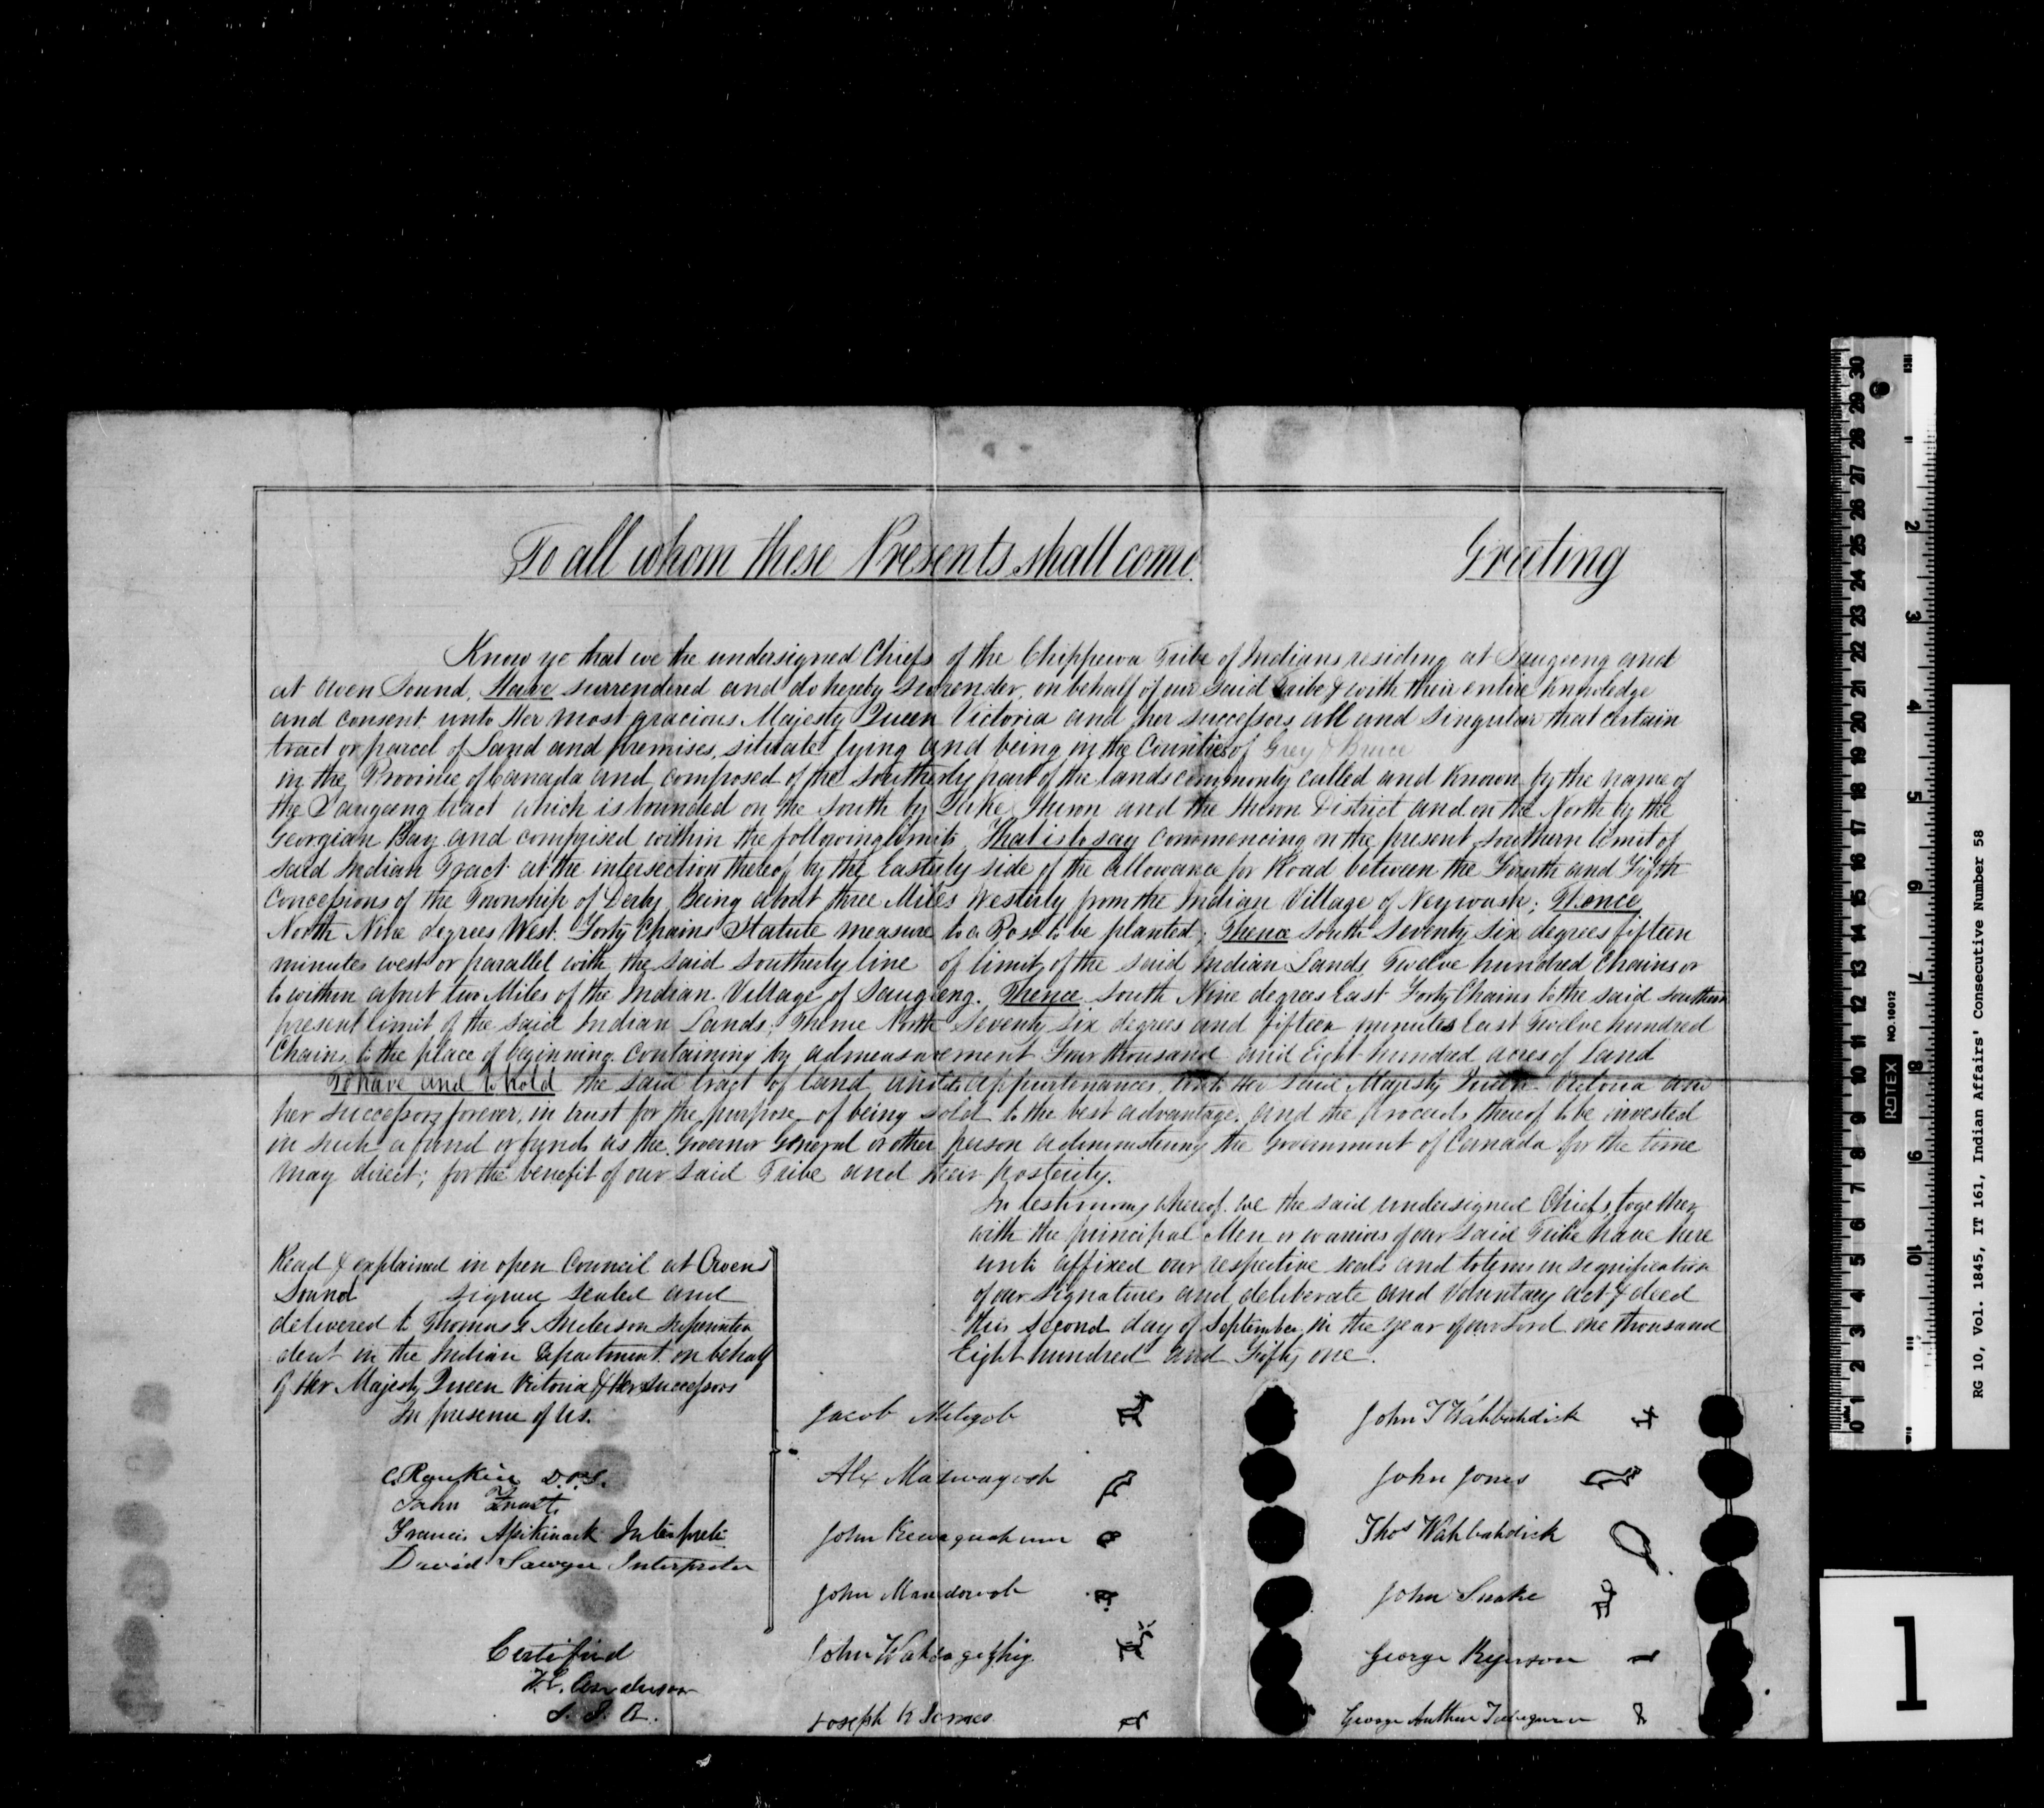 To all whom these Presents shall come. Greeting
Know ye that we the undersigned Chiefs of the Chippewa Tribe of Indians residing at Saugeeng and
at Owen Sound, Have surrendered and do hereby surrender, on behalf of our said Tribe & with their entire knowledge
and consent unto Her most gracious Majesty Queen Victoria and her successors all and singular that certain
tract or parcel of Land and premises, situate lying and being in the Counties of Grey & Bruce
in the Province of Canada and composed of the Southerly part of the lands commonly called and known by the name of
the Saugeeng tract which is bounded on the South by Lake Huron and the Huron District and on the North by the
Georgian Bay and comprised within the following limits That is to say Commencing on the present southern limit of
said Indian Tract at the intersection thereof by the Easterly side of the allowance for Road between the Fourth and Fifth
Concessions of the Township of Derby Being about three Miles Westerly from the Indian Village of Neywash; Thence
North Nine degrees West. Forty Chains Statute measure to a Post to be planted; Thence South Seventy Six degrees fifteen
minutes west or parallel with the said southerly line of limit of the said Indian Lands Twelve hundred Chains or
to within about two Miles of the Indian Village of Saugeeng. Thence South Nine degrees East Forty Chains to the said southern
present limit of the said Indian Lands; Thence North Seventy Six degrees and fifteen minutes East Twelve hundred
Chains to the place of beginning. Containing by admeasurement Four thousand and Eight hundred acres of Land
To have and to hold the said tract of land and its appurtenances, unto Her said Majesty Queen Victoria and
her successors forever, in trust for the purpose of being sold to the best advantage, and the proceeds thereof to be invested
in such a fund or funds as the Governor General or other person administering the Government of Canada for the time
may direct; for the benefit of our said Tribe and their posterity.
In testimony whereof we the said undersigned Chiefs, together
with the principal Men or warriors of our said Tribe have here
unto affixed our respective seals and totems in signification
of our Signatures and deliberate and Voluntary act & deed
this second day of September, in the year of our Lord one thousand
Eight hundred and Fifty one.
Read & explained in open Council at Owens
Sound signed sealed and
delivered to Thomas G Anderson Superinten
dent in the Indian Department on behalf
of Her Majesty Queen Victoria & Her Successors
In presence of Us.
C. Rankin D.P.S.
John Frost
Francis Assikinack Interpreter
David Sawyer Interpreter
Certified
T.G. Anderson
S. I. A.
Jacob Metegob
Alx Maswagosh
John Kewaquakum
John Mamdowob
John Wahdagezhig
Joseph K Jones
John T Wahbahdick
John Jones
Thos Wahbahdick
John Snake
George Ryerson
George Arthur
ROTEX NO.10012
RG 10, Vol. 1845, IT 161, Indian Affairs' Consecutive Number 58
1